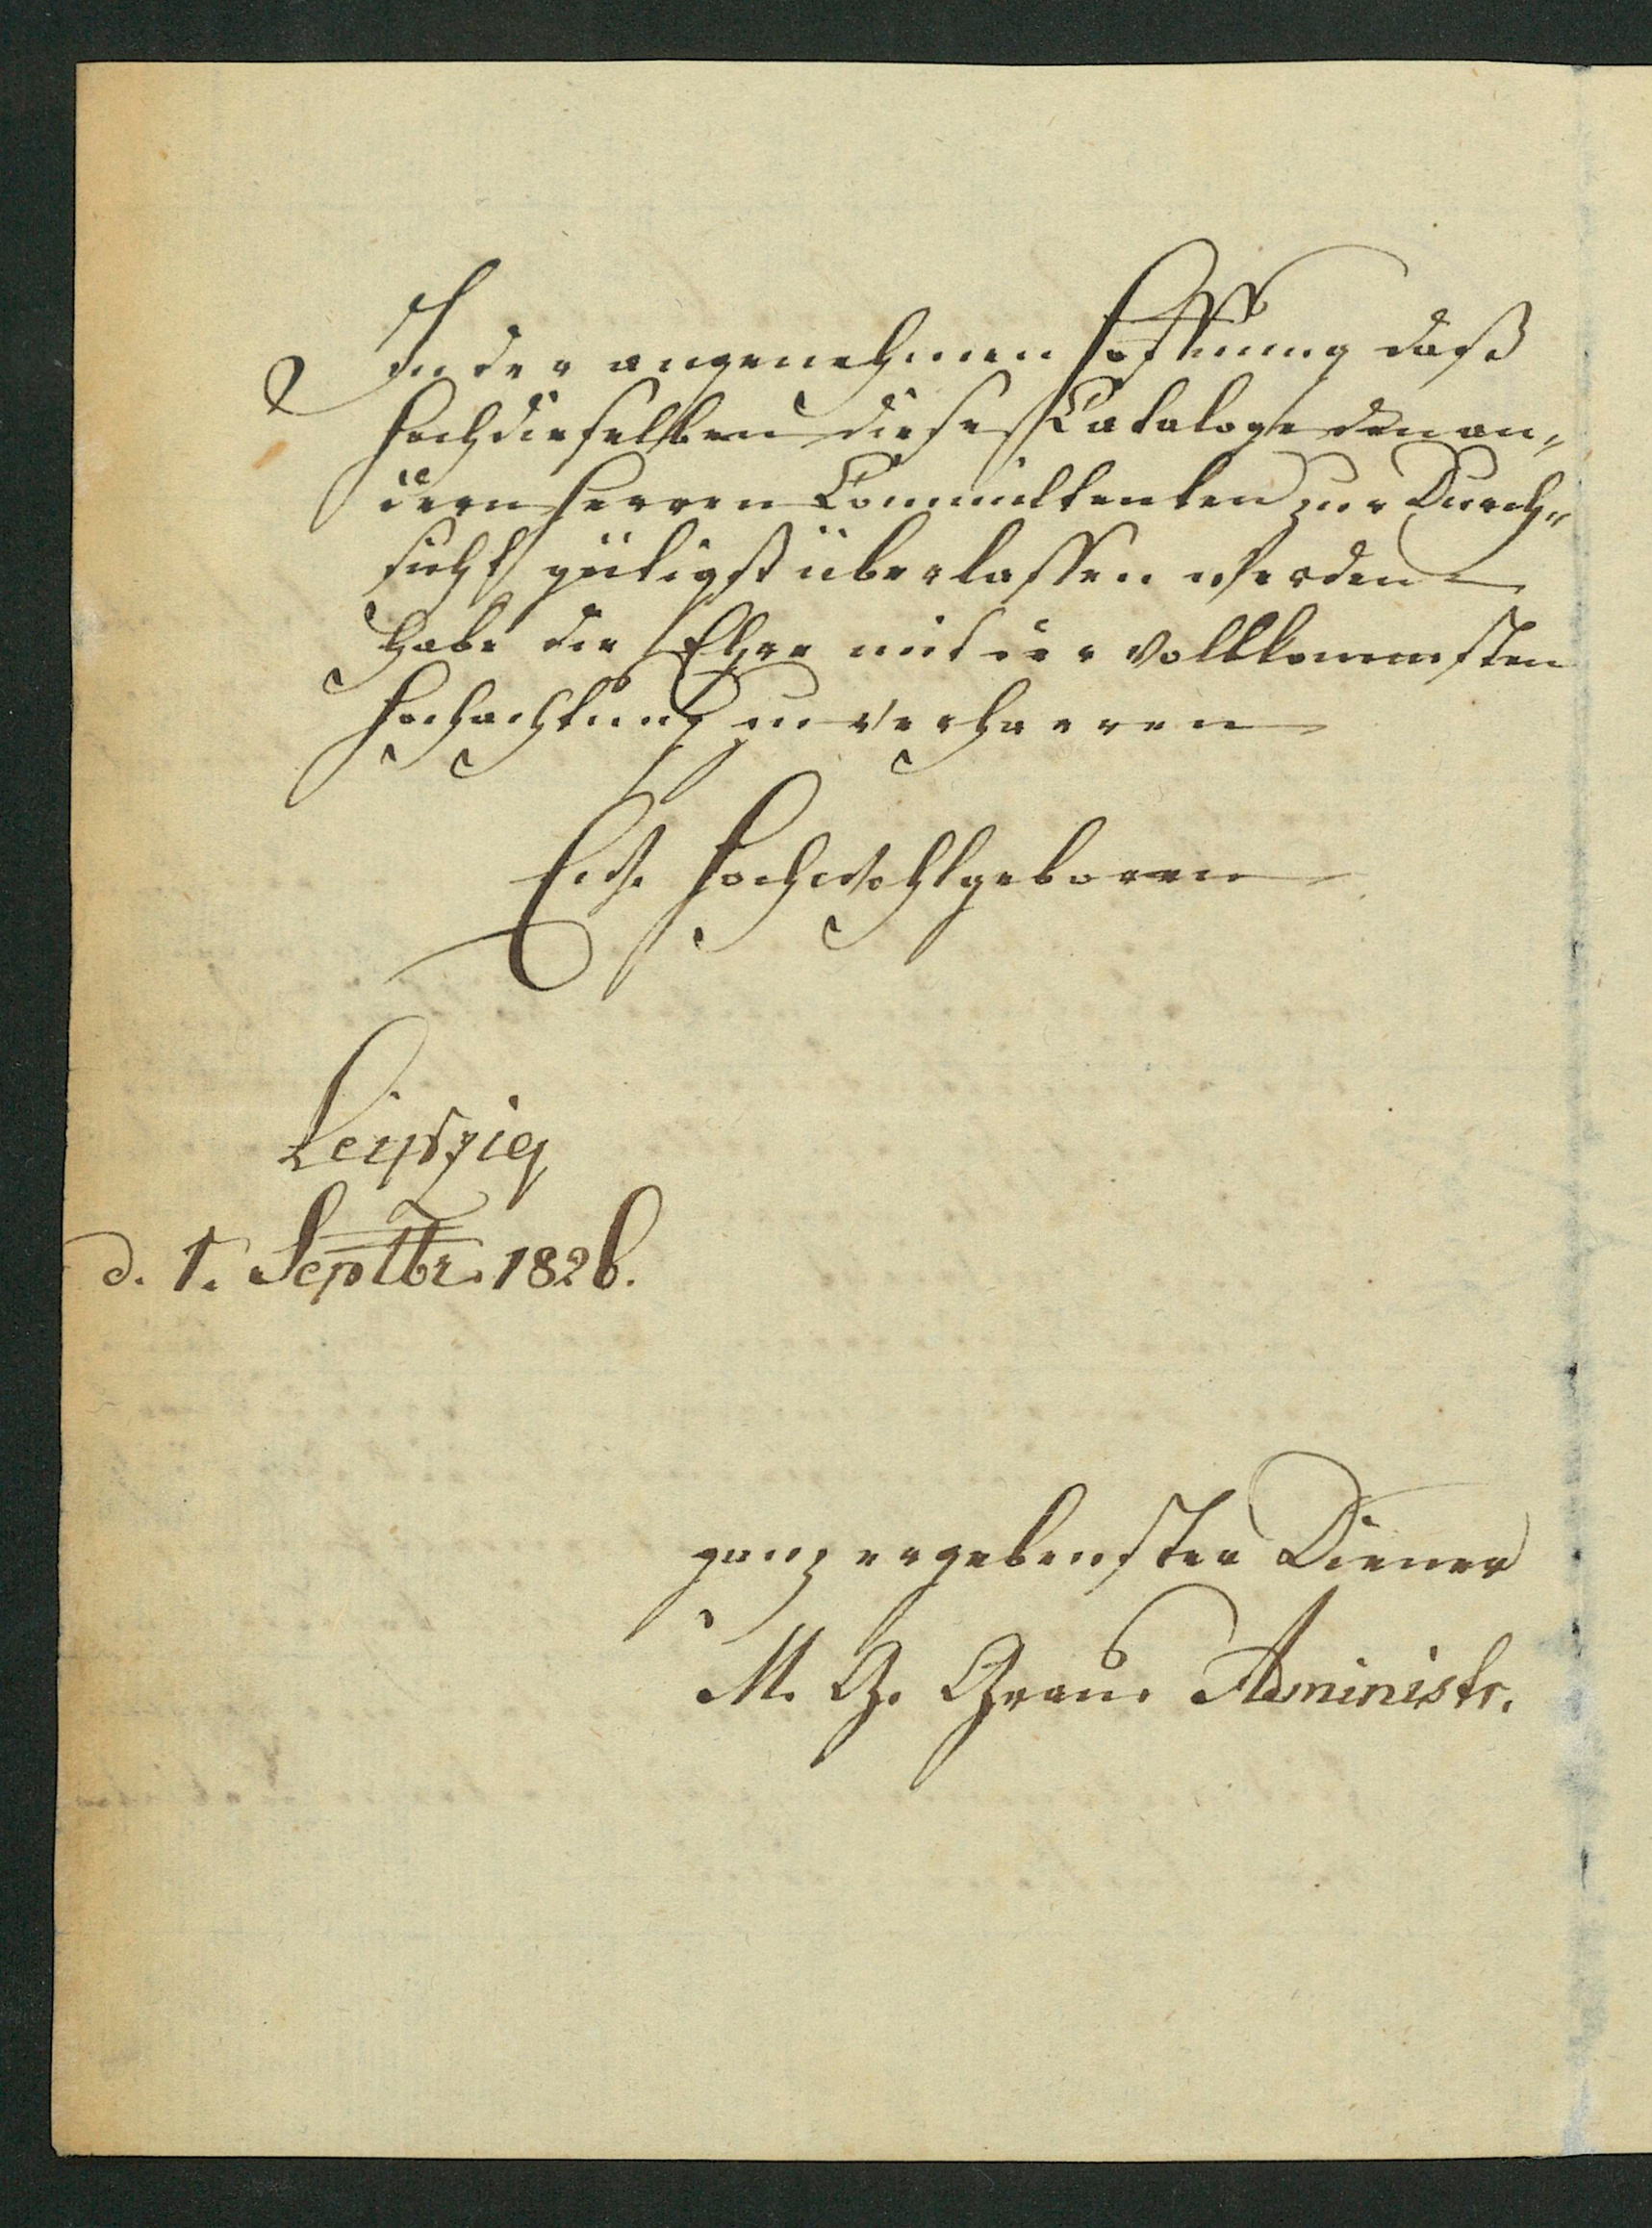 In der angenehmen Hoffnung daß
Hochdieselben diese Cataloge den an„
dern Herren Committenten zur Durch„
sicht gütigst überlassen werden
habe die Ehre mit der vollkommsten
Hochachtung zu verharren
Ew. Hochwohlgeboren
Leipzig
d. 1. Septbr. 1826.
ganz ergebenster Diener
M. G. Grau. Administr.